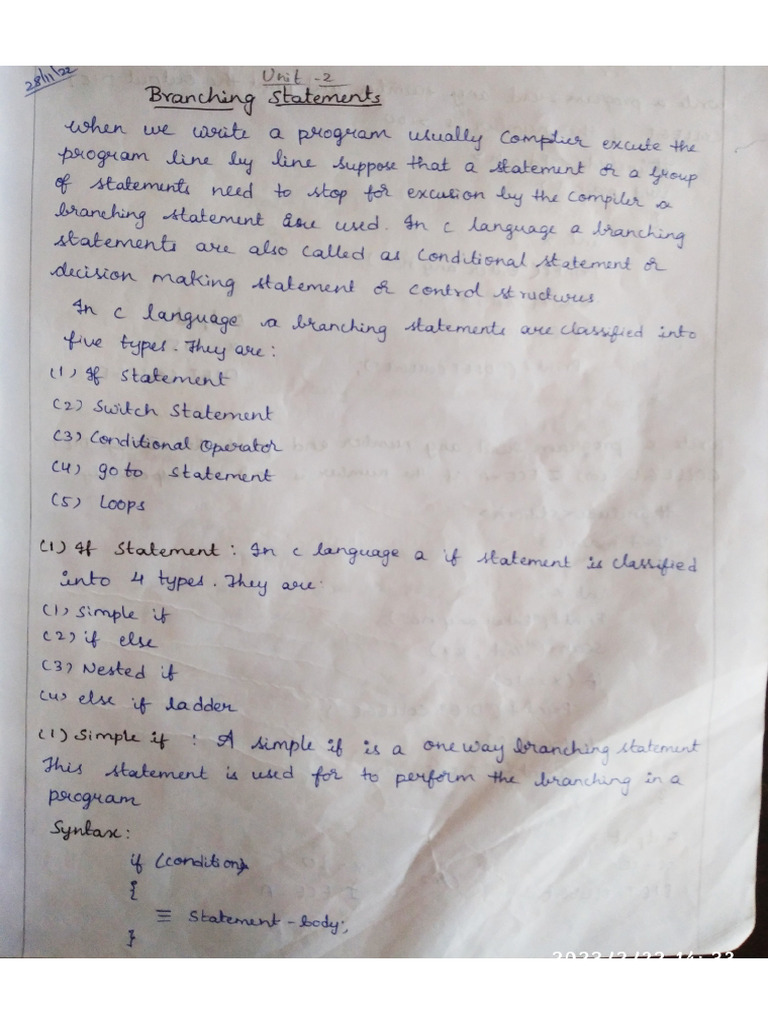 28/11/22
Unit - 2
Branching Statements
When we write a program usually Complier excute the
program line by line suppose that a statement or a Group
of statements need to stop for excusion by the Compiler a
branching statement are used. In c language a branching
statements are also called as Conditional statement or
decision making statement or control structures.
In c language a branching statements are classified into
five types. They are:
(1) If Statement
(2) Switch Statement
(3) Conditional Operator
(4) go to Statement
(5) Loops
(1) If Statement : In c language a if statement is classified
into 4 types. They are:
(1) Simple if
(2) if else
(3) Nested if
(4) else if ladder
(1) Simple if : A simple if is a one way branching statement
This statement is used for to perform the branching in a
program
Syntax:
if (condition)
{
≡ Statement-body;
}
2023/2/22 14:33